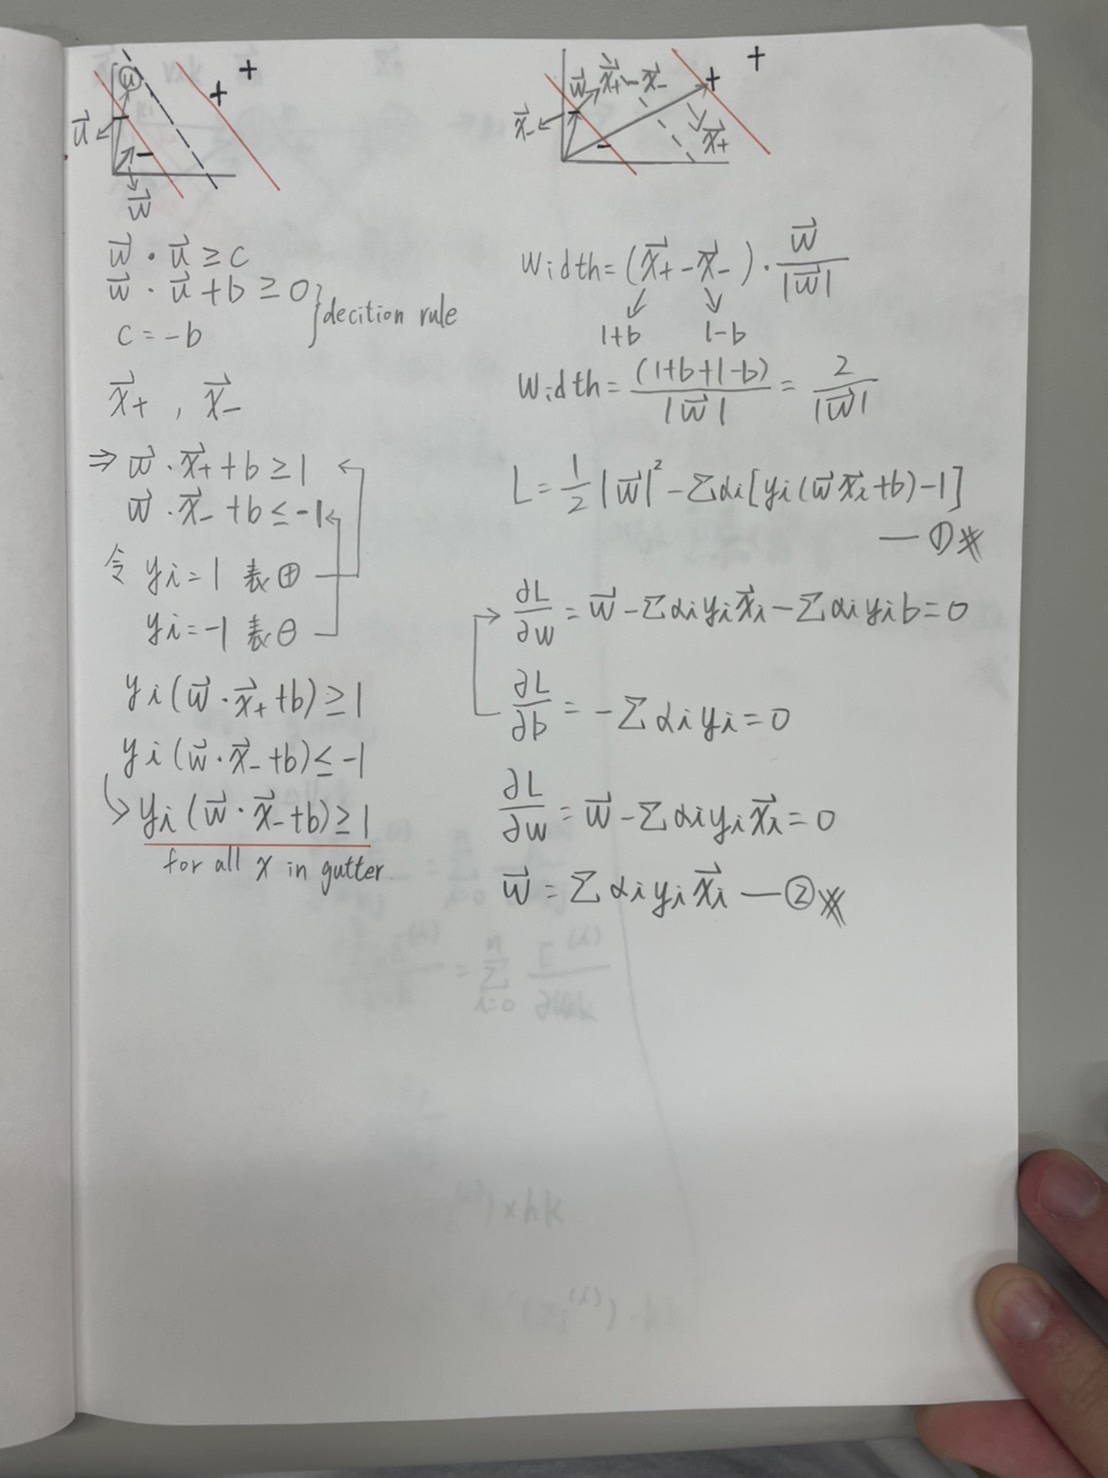 u
+
+
u⃗
−
−
w⃗
w⃗ · u⃗ ≥ c
w⃗ · u⃗ + b ≥ 0 } decition rule
c = −b
x⃗₊ , x⃗₋
⇒ w⃗ · x⃗₊ + b ≥ 1
w⃗ · x⃗₋ + b ≤ −1
令 yi = 1 表 ⊕
yi = −1 表 ⊖
yi (w⃗ · x⃗₊ + b) ≥ 1
yi (w⃗ · x⃗₋ + b) ≤ −1
↳ yi (w⃗ · x⃗₋ + b) ≥ 1
for all x in gutter
+
w⃗ x⃗₊ − x⃗₋ +
x⃗₋ − x⃗₊
width = (x⃗₊ − x⃗₋) · w⃗/|w⃗|
1+b 1−b
width = (1+b+1−b)/|w⃗| = 2/|w⃗|
L = 1/2 |w⃗|² − Σαi [yi (w⃗ x⃗i + b) − 1]
— ①※
∂L/∂w = w⃗ − Σαi yi x⃗i − Σαi yi b = 0
∂L/∂b = − Σ αi yi = 0
∂L/∂w = w⃗ − Σαi yi x⃗i = 0
w⃗ = Σ αi yi x⃗i — ②※